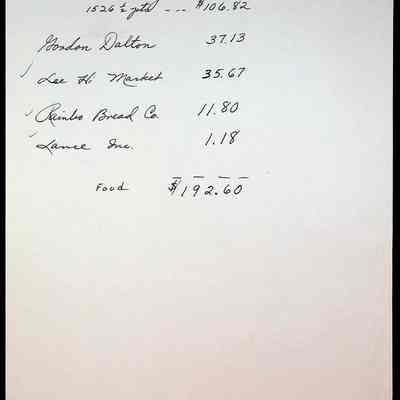 1526 ½ pts --- $106.82
Gordon Dalton 37.13
✓ Lee H. Market 35.67
✓ Rainbo Bread Co. 11.80
✓ Lance Inc. 1.18
Food $192.60